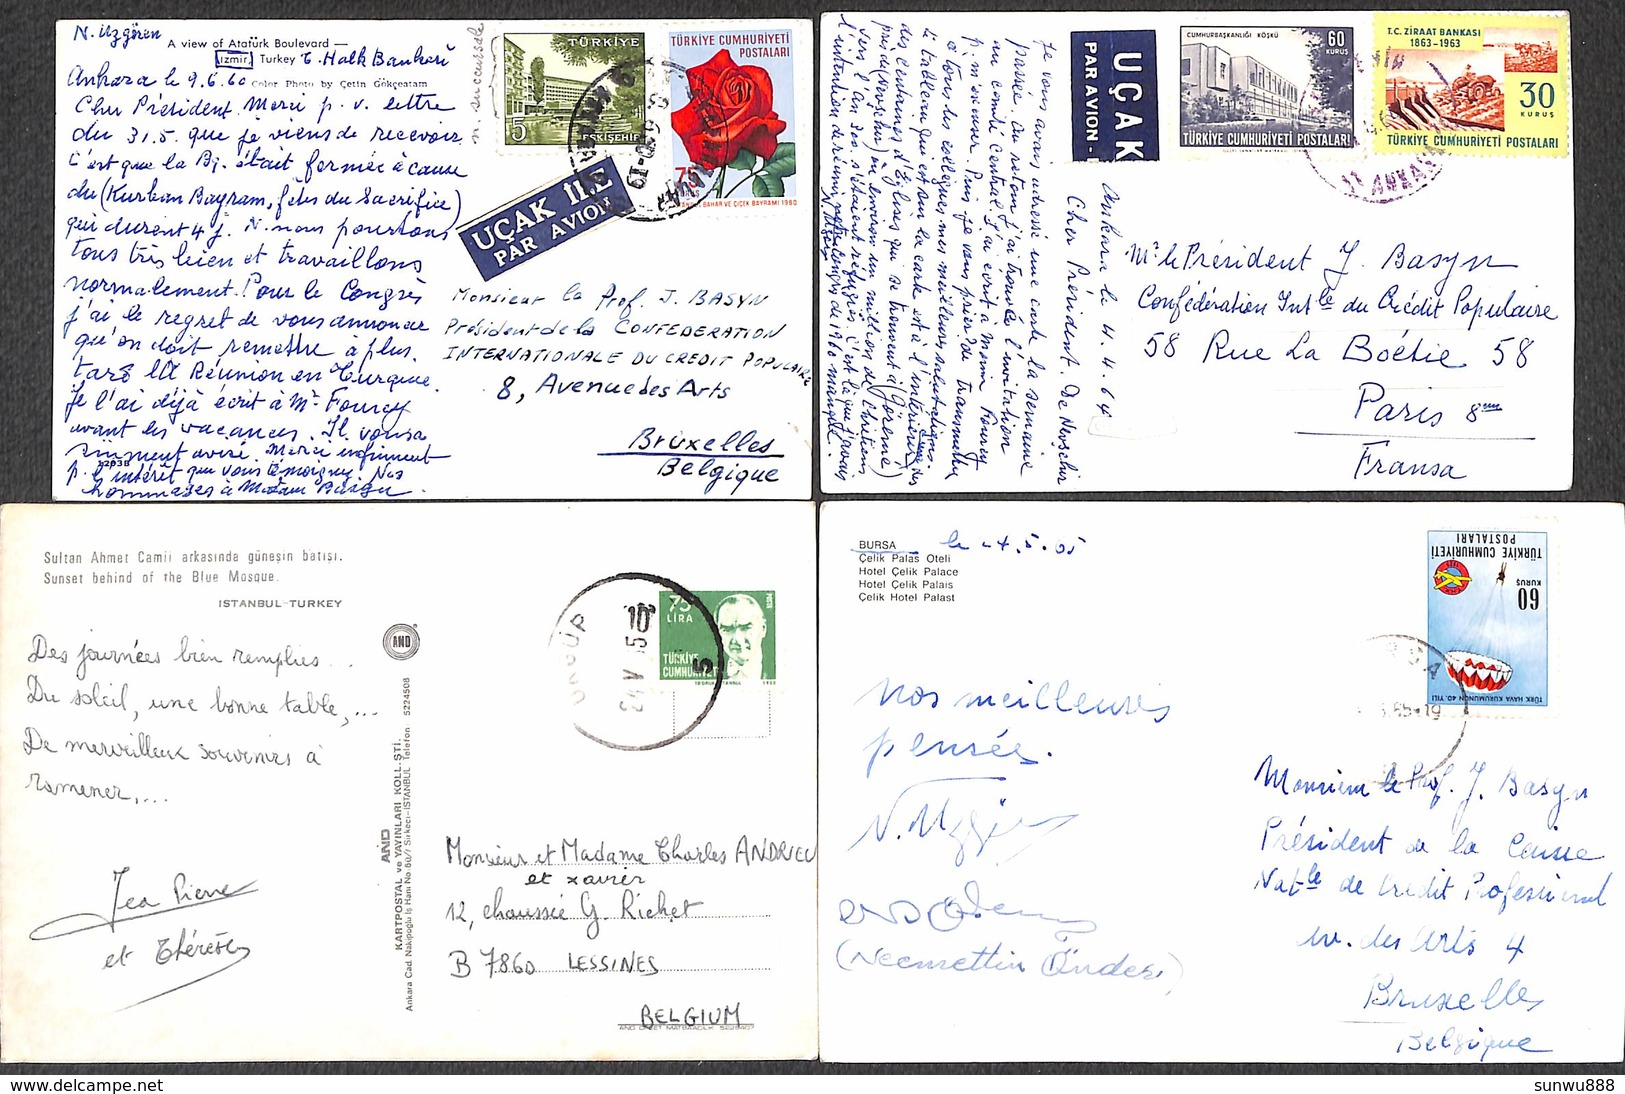 N. Uzgören
A view of Atatürk Boulevard —
Izmir, Turkey T. Halk Bankasi
Color Photo by Çetin Gökçeatam
n. succursale
Ankara le 9.6.60
Cher Président. Merci p. v. lettre
du 31.5. que je viens de recevoir.
C'est que la Bq. était fermée à cause
du (Kurban Bayram, fêtes du Sacrifice)
qui durent 4 j. N. nous portons
tous très bien et travaillons
normalement. Pour le Congrès
j'ai le regret de vous annoncer
qu'on doit remettre à plus.
tard la Réunion en Turquie.
Je l'ai déjà écrit à Mr Fourcy
avant les vacances. Il vous a
sûrement avisé. Merci infiniment
p. l'intérêt que vous témoignez. Nos
hommages à Madame Basyn.
TÜRKİYE
5
ESKİŞEHİR
TÜRKİYE CUMHURİYETİ
POSTALARI
75
KURUŞ
İSTANBUL BAHAR VE ÇİÇEK BAYRAMI 1960
UÇAK İLE
PAR AVION
Monsieur le Prof. J. BASYN
Président de la CONFEDERATION
INTERNATIONALE DU CREDIT POPULAIRE
8, Avenue des Arts
Bruxelles
Belgique
UÇAK
PAR AVION
CUMHURBAŞKANLIĞI KÖŞKÜ
60
KURUŞ
TÜRKİYE CUMHURİYETİ POSTALARI
T.C. ZİRAAT BANKASI
1863-1963
30
KURUŞ
TÜRKİYE CUMHURİYETİ POSTALARI
ANKARA
Ankara le 4.4.64
Cher Président. De Nevsehir
Je vous avais adressé une carte la semaine
passée. Au retour j'ai trouvé l'invitation
au comité central. J'ai écrit à Monsieur Fourcy
p. m'excuser. Puis je vous prier de transmettre
à tous les collègues mes meilleures salutations.
Le tableau qui est sur la carte est à l'intérieur d'une des
des centaines d'Eglises qui se trouvent à (Göreme)
Mr le Président J. Basyn
Confédération Intle du Crédit Populaire
58 Rue La Boétie 58
Paris 8eme
Fransa
Sultan Ahmet Camii arkasında güneşin batışı.
Sunset behind of the Blue Mosque.
ISTANBUL-TURKEY
Des journées bien remplies...
Du soleil, une bonne table,...
De merveilleux souvenirs à
ramener,...
Jea Pierre
et Thérèse
AND
AND
KARTPOSTAL ve YAYINLARI KOLL. ŞTİ.
Ankara Cad. Nakipoğlu İş Hanı No.60/1 Sirkeci-İSTANBUL Telefon 5224508
75
LİRA
TÜRKİYE
CUMHURİYETİ
ÜRGÜP
Monsieur et Madame Charles ANDRIEU
et Xavier
12, chaussée G. Richet
B 7860 LESSINES
BELGIUM
BURSA le 24.5.65
Çelik Palas Oteli
Hotel Çelik Palace
Hotel Çelik Palais
Çelik Hotel Palast
TÜRKİYE CUMHURİYETİ
POSTALARI
60
KURUŞ
TÜRK HAVA KURUMUNUN 40. YILI
nos meilleures
pensée.
N. Uzgören
(Necmettin Önder)
Monsieur le Prof. J. Basyn
Président de la Caisse
Natle de Crédit Professionnel
Av. des Arts 4
Bruxelles
Belgique
sunwu888